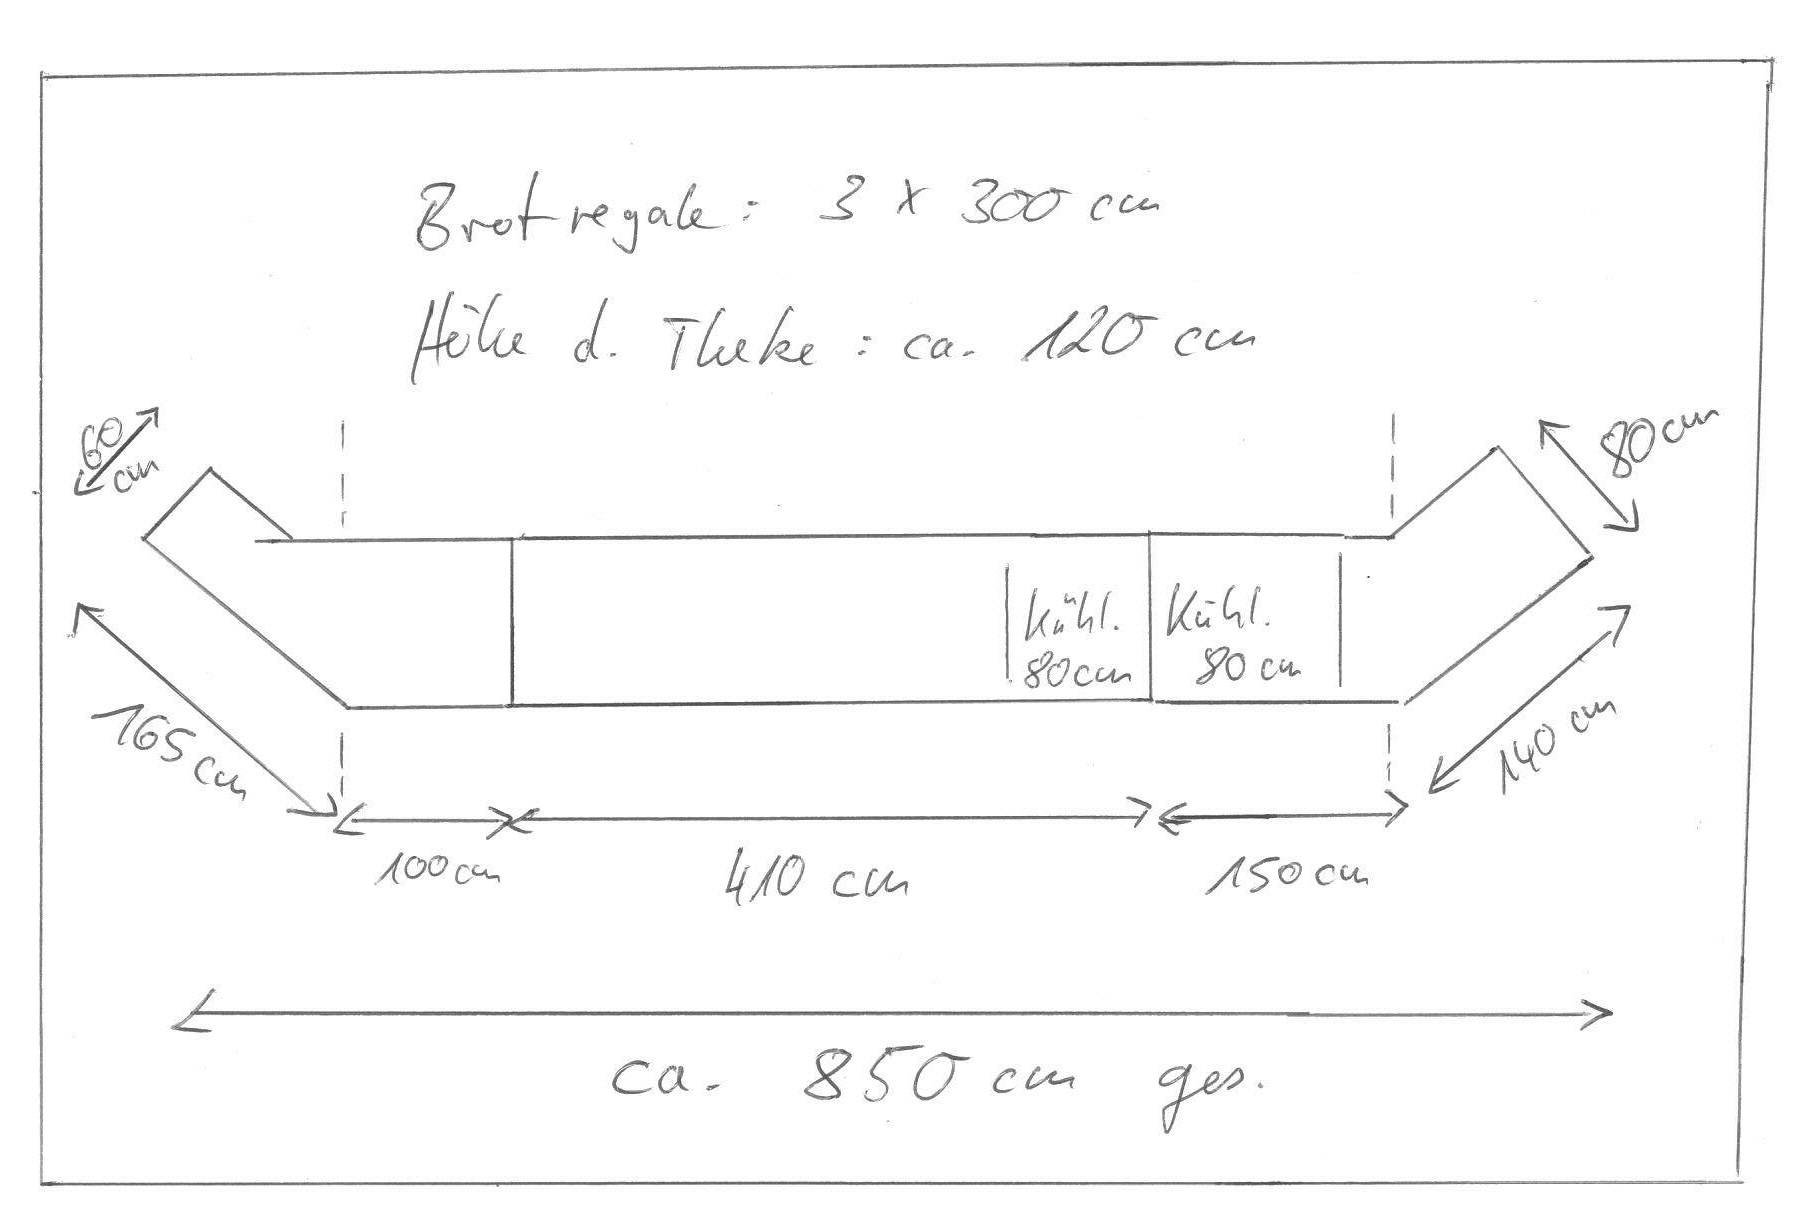 Brotregale: 3 x 300 cm
Höhe d. Theke: ca. 120 cm
60
cm
80 cm
Kühl.
80 cm
Kühl.
80 cm
165 cm
140 cm
100 cm
410 cm
150 cm
ca. 850 cm ges.